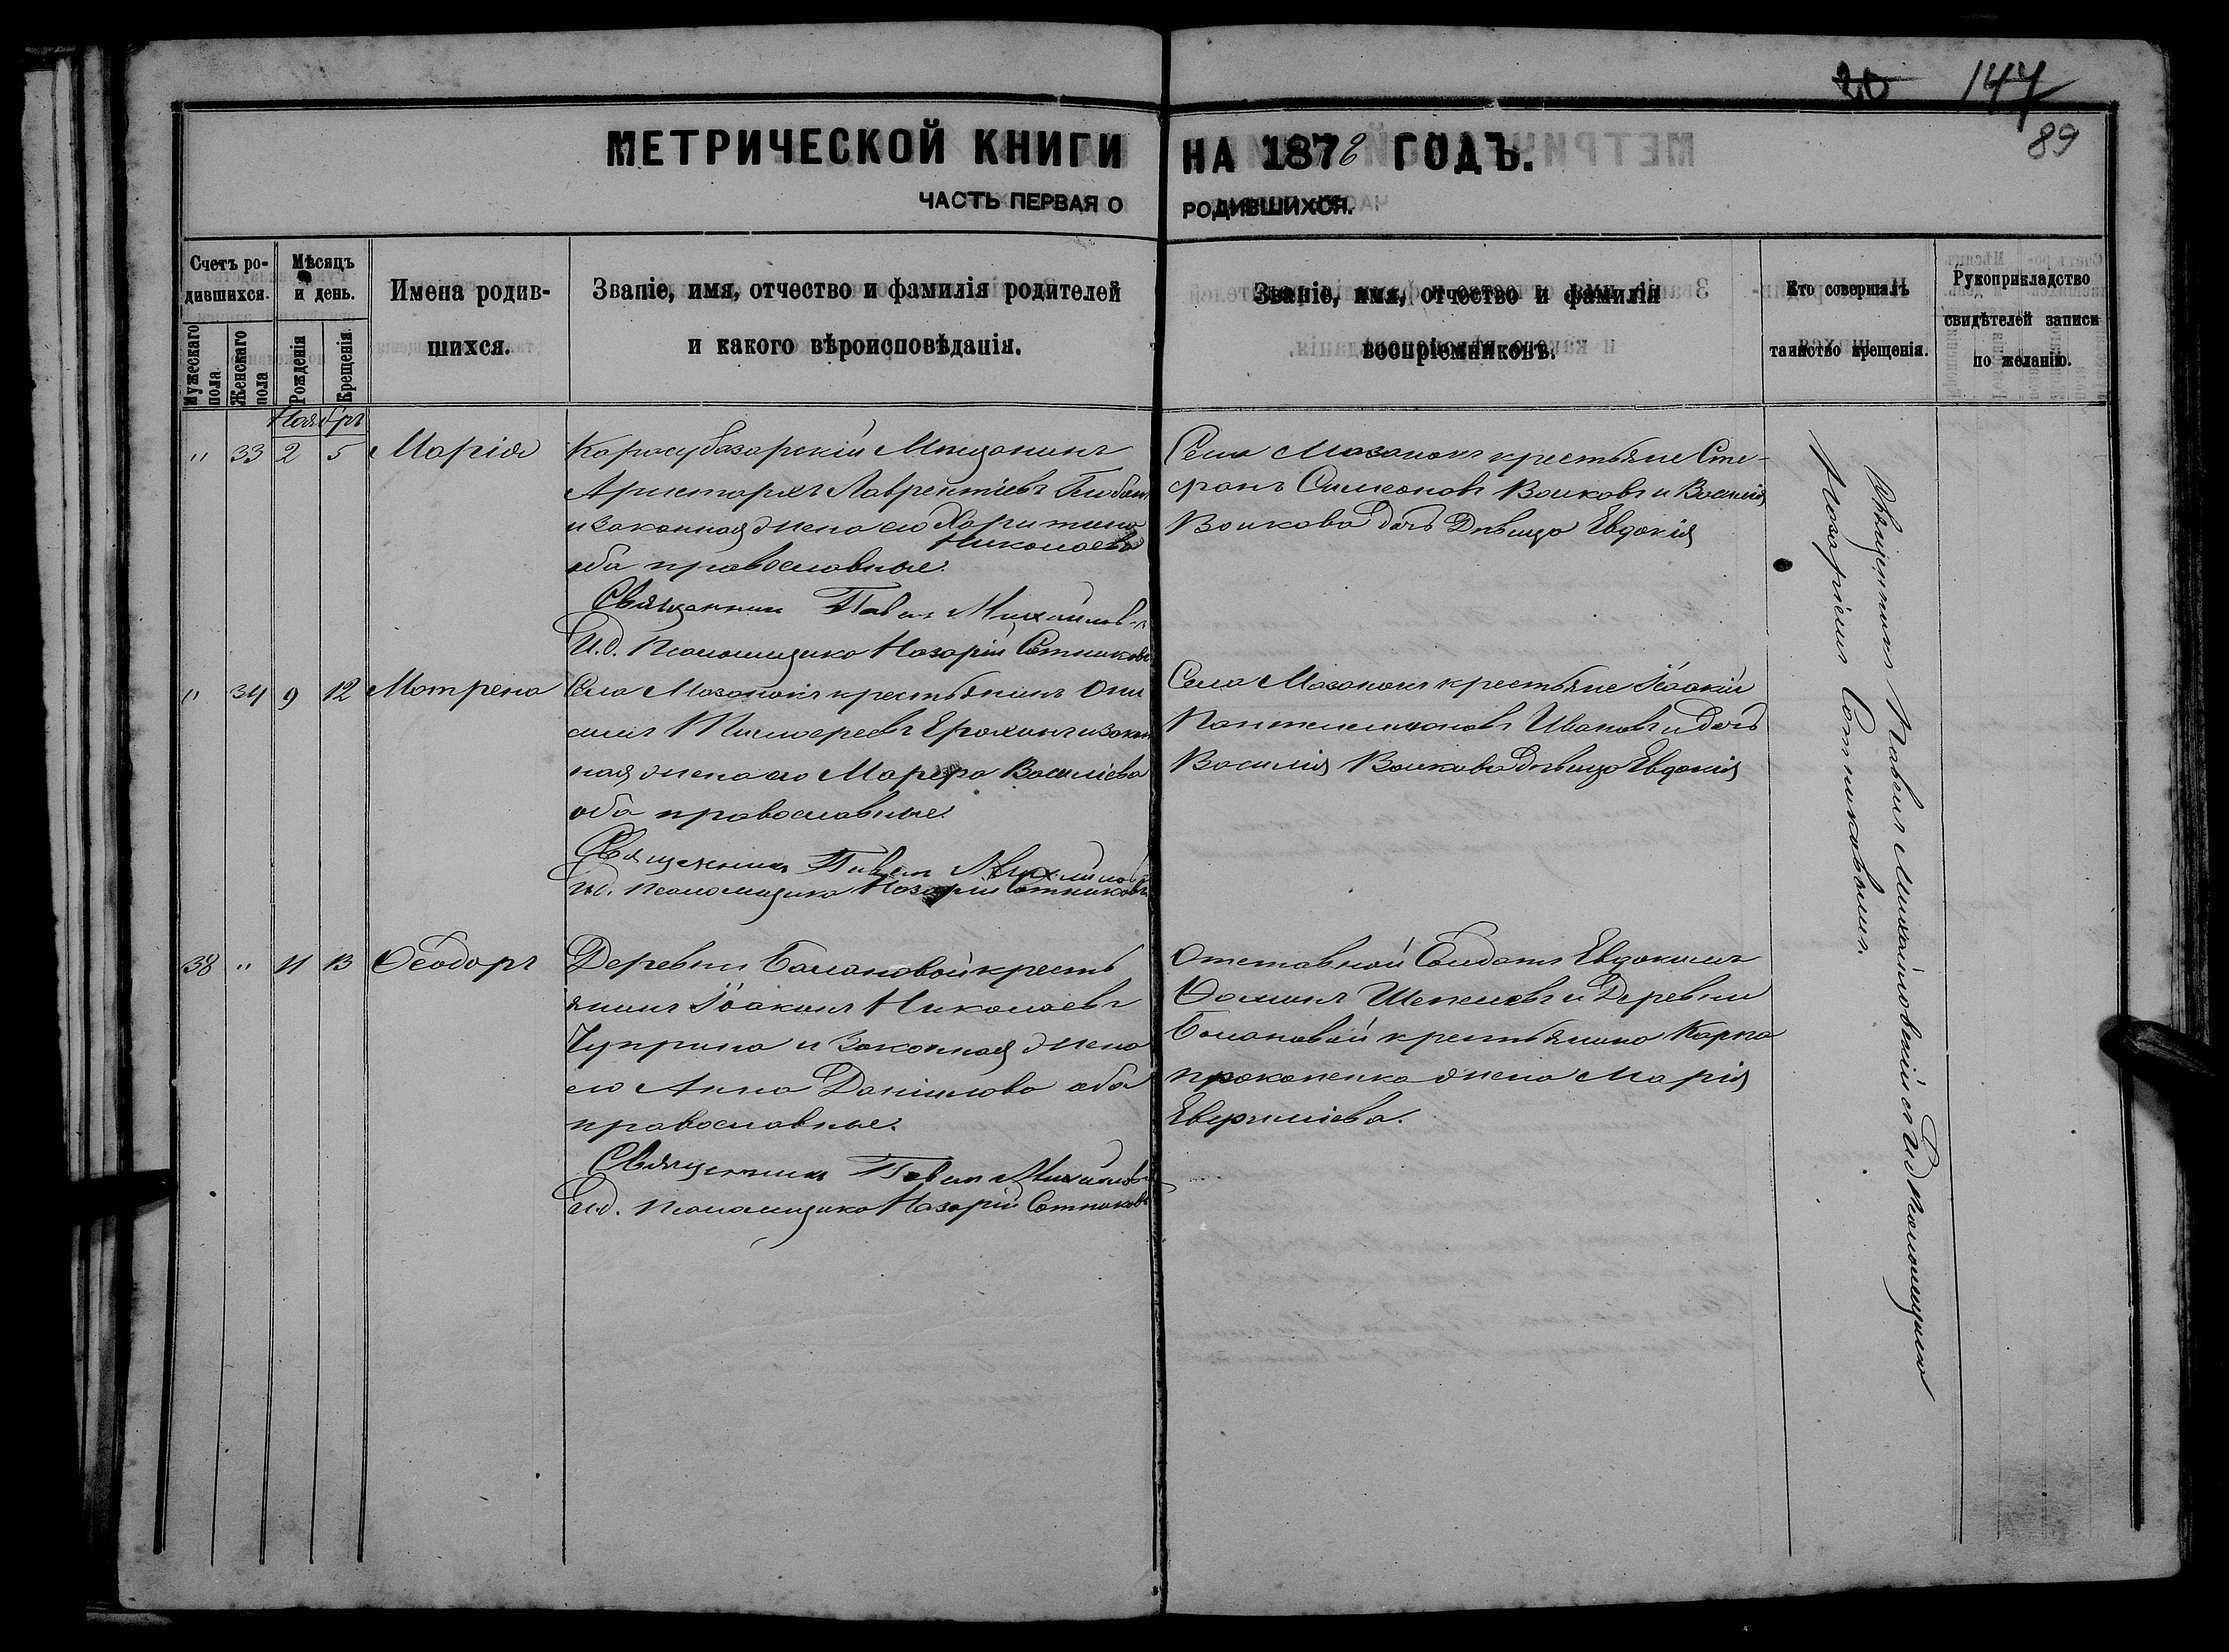 20 147
89
МЕТРИЧЕСКОЙ КНИГИ НА 1878 ГОДЪ.
ЧАСТЬ ПЕРВАЯ О РОДИВШИХСЯ.
Счетъ родившихся.
Мужескаго пола
Женскаго пола
Мѣсяцъ и день.
Рожденія
Крещенія
Имена родившихся.
Званіе, имя, отчество и фамилія родителей
и какого вѣроисповѣданія.
Званіе, имя, отчество и фамилія
воспріемниковъ.
Кто совершалъ
таинство крещенія.
Рукоприкладство
свидѣтелей записи
по желанію.
Ноябрь
" 33 2 5 Марія
Карасубазарскій Мѣщанинъ
Аристархъ Лаврентіевъ
и законная жена его Харитина
Николаева
оба православные.
Священникъ Павелъ Михайловъ
И.д. Псаломщика Назарій Сотниковъ
Села Мазанокъ крестьяне Сте-
фанъ Симеоновъ Волковъ и Василія
Волкова дочь Дѣвица Евдокія
" 34 9 12 Матрена
Села Мазанокъ крестьянинъ Они
симъ Ерохинъ и закон
ная жена его Марфа Василіева
оба православные.
Священникъ Павелъ Михайлов
И.д. Псаломщика Назарій Сотниковъ
Села Мазанокъ крестьяне Іоакимъ
Пантелеимоновъ Ивановъ и дочь
Василія Волкова дѣвица Евдокія
38 " 11 13 Ѳеодоръ
Деревни Балановой кресть
янинъ Іоакимъ Николаевъ
Чуприна и Законная жена
его Анна Даніилова оба
православные.
Священникъ Павелъ Михайловъ
И.д. Псаломщика Назарій Сотниковъ
Отставной Солдатъ Евдокимъ
Ѳоминъ Шепелевъ и Деревни
Балановой крестьянина Карпа
Прокопенка жена Марія
Священникъ Павелъ Михайловскій съ И.д. Псаломщика
Назаріемъ Сотниковымъ.